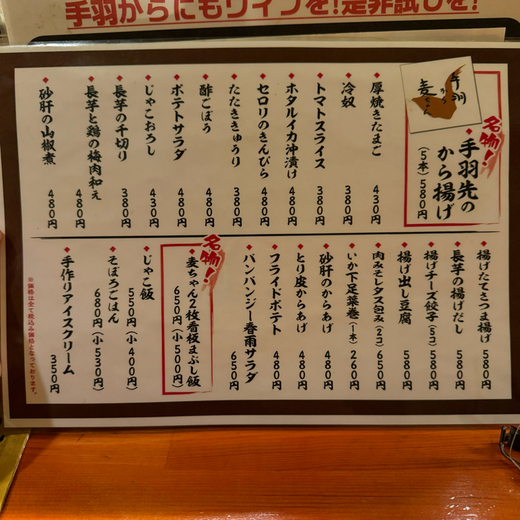 手羽からにもワインを!是非試しを!
手羽
から
麦ちゃん
名物!
手羽先の
から揚げ
(5本) 580円
厚焼きたまご 430円
冷奴 380円
トマトスライス 380円
ホタルイカ沖漬け 480円
セロリのきんぴら 480円
たたききゅうり 380円
酢ごぼう 480円
ポテトサラダ 480円
じゃこおろし 430円
長芋の千切り 380円
長芋と鶏の梅肉和え 480円
砂肝の山椒煮 480円
揚げたてさつま揚げ 580円
長芋の揚げだし 580円
揚げチーズ餃子(5コ) 580円
揚げ出し豆腐 580円
肉みそレタス包み(2コ) 650円
いか下足葉巻(1本) 260円
砂肝のからあげ 480円
とり皮からあげ 480円
フライドポテト 480円
バンバンジー春雨サラダ 650円
名物!
麦ちゃん2枚看板まぶし飯
650円(小500円)
じゃこ飯
550円(小400円)
そぼろごはん
680円(小530円)
手作りアイスクリーム 350円
※価格は全て税込み価格となっております。